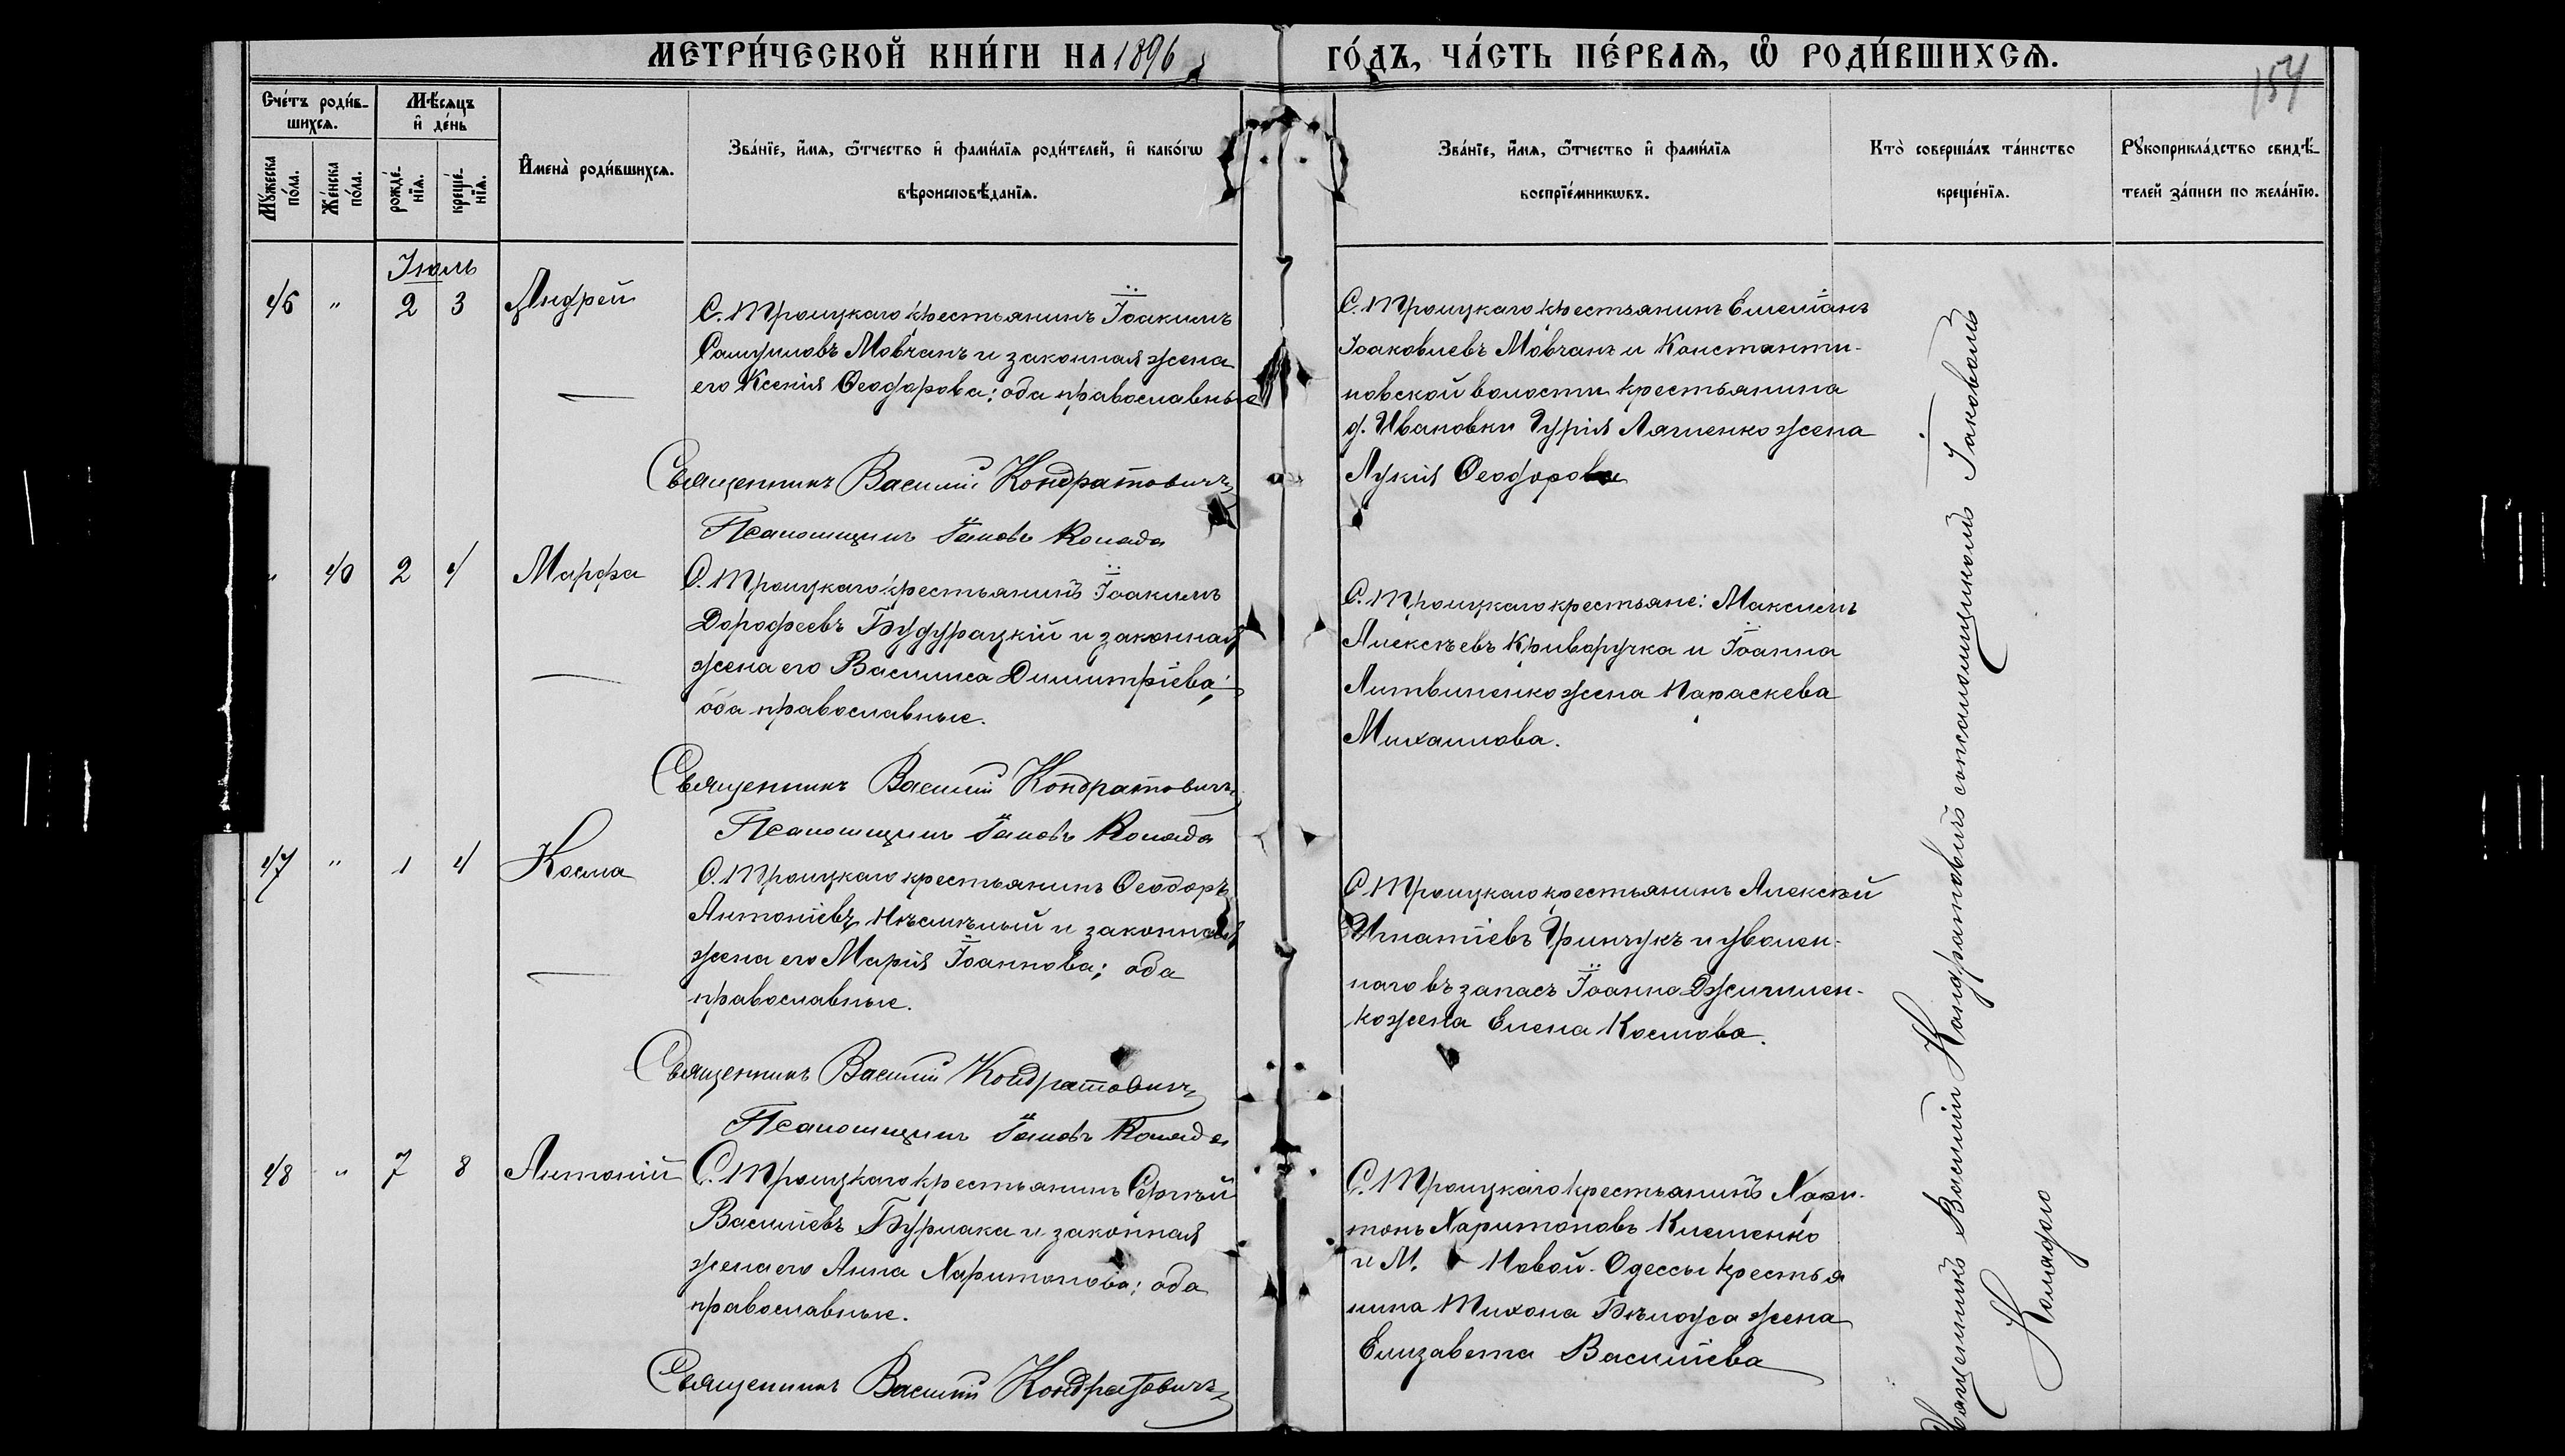 МЕТРИ́ЧЕСКОЙ КНИ́ГИ НА 1896
ГО́ДЪ, ЧА́СТЬ ПЕ́РВАЯ, Ѡ҆ РОДИ́ВШИХСЯ.
154
Сче́тъ роди́в-
шихся.
Мѣ́сяцъ
и҆ де́нь
Мꙋ́жеска
по́ла.
Же́нска
по́ла.
рожде́-
нїя.
креще́-
нїя.
И҆мена̀ роди́вшихся.
Зва́нїе, и҆́мя, ѻ҆́тчество и҆ фами́лїя роди́телей, и҆ како́гѡ
вѣроисповѣ́данїя.
Зва́нїе, и҆́мя, ѻ҆́тчество и҆ фами́лїя
воспрїе́мникѡвъ.
Кто̀ соверша́лъ та́инство
креще́нїя.
Рꙋкоприкла́дство свидѣ́-
телей за́писи по жела́нїю.
Іюль
46 " 2 3 Андрей
С. Троицкаго крестьянинъ Іоакимъ
Самуиловъ Мовчанъ и законная жена
его Ксенія Ѳеодорова; оба православные
Священникъ Василій Кондратовичъ
Псаломщикъ Іаковъ Коляда
С. Троицкаго крестьянинъ Емеліанъ
Іоаковлевъ Мовчанъ и Константи-
новской волости крестьянина
д. Ивановки Гурія Ляшенко жена
Лукія Ѳеодорова
" 40 2 4 Марфа
С. Троицкаго крестьянинъ Іоакимъ
Дорофеевъ Будурацкій и законная
жена его Василиса Димитріева;
оба православные.
Священникъ Василій Кондратовичъ
Псаломщикъ Іаковъ Коляда
С. Троицкаго крестьяне: Максимъ
Алексѣевъ Криворучка и Іоанна
Литвиненко жена Параскева
Михаилова.
47 " 1 4 Косма
С. Троицкаго крестьянинъ Ѳеодоръ
Антоніевъ и законная
жена его Марія Іоаннова; оба
православные.
Священникъ Василій Кондратовичъ
Псаломщикъ Іаковъ Коляда
С. Троицкаго крестьянинъ Алексѣй
Игнатіевъ Гринчукъ и уволен-
наго въ запасъ Іоанна
ко жена Елена Космова.
48 " 7 8 Антоній
С. Троицкаго крестьянинъ Сергѣй
Василіевъ Бурлака и законная
жена его Анна Харитонова; оба
православные.
Священникъ Василій Кондратовичъ
С. Троицкаго крестьянинъ Хари-
тонъ Харитоновъ Клименко
и М. Новой-Одессы крестья
нина Тихона Бѣлоуса жена
Елизавета Василіева
Священникъ Василій Кондратовичъ съ псаломщикомъ Іаковомъ
Колядою